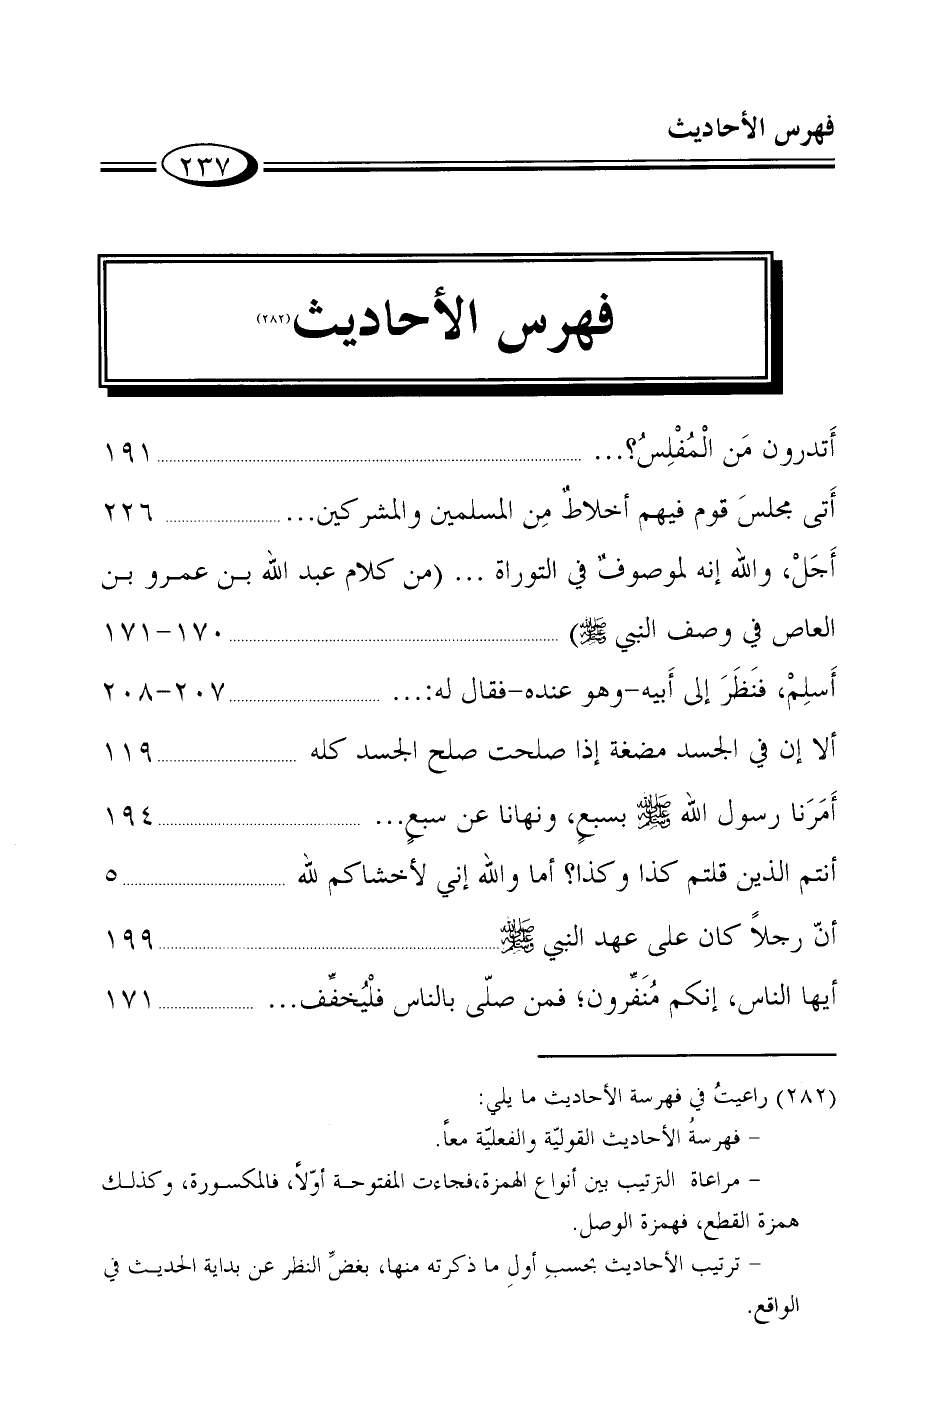 فهرس الأحاديث
٢٣٧
فهرس الأحاديث(٢٨٢)
أَتدرون مَن الْمُفْلِسُ؟... ١٩١
أَتى مجلسَ قوم فيهم أخلاطٌ مِن المسلمين والمشركين... ٢٢٦
أَجَلْ، والله إنه لموصوفٌ في التوراة ... (من كلام عبد الله بن عمرو بن
العاص في وصف النبي ﷺ) ١٧٠-١٧١
أَسلِمْ، فنَظَرَ إلى أَبيه-وهو عنده-فقال له:... ٢٠٧-٢٠٨
ألا إن في الجسد مضغة إذا صلحت صلح الجسد كله ١١٩
أَمَرَنا رسول الله ﷺ بسبعٍ، ونهانا عن سبعٍ... ١٩٤
أنتم الذين قلتم كذا وكذا؟ أما والله إني لأخشاكم لله ٥
أنّ رجلاً كان على عهد النبي ﷺ ١٩٩
أيها الناس، إنكم مُنَفِّرون؛ فمن صلّى بالناس فلْيُخفِّف... ١٧١
(٢٨٢) راعيتُ في فهرسة الأحاديث ما يلي:
- فهرسةُ الأحاديث القوليّة والفعليّة معاً.
- مراعاة الترتيب بين أنواع الهمزة،فجاءت المفتوحة أوّلاً، فالمكسورة، وكذلك
همزة القطع، فهمزة الوصل.
- ترتيب الأحاديث بحسبِ أولِ ما ذكرته منها، بغضِّ النظر عن بداية الحديث في
الواقع.